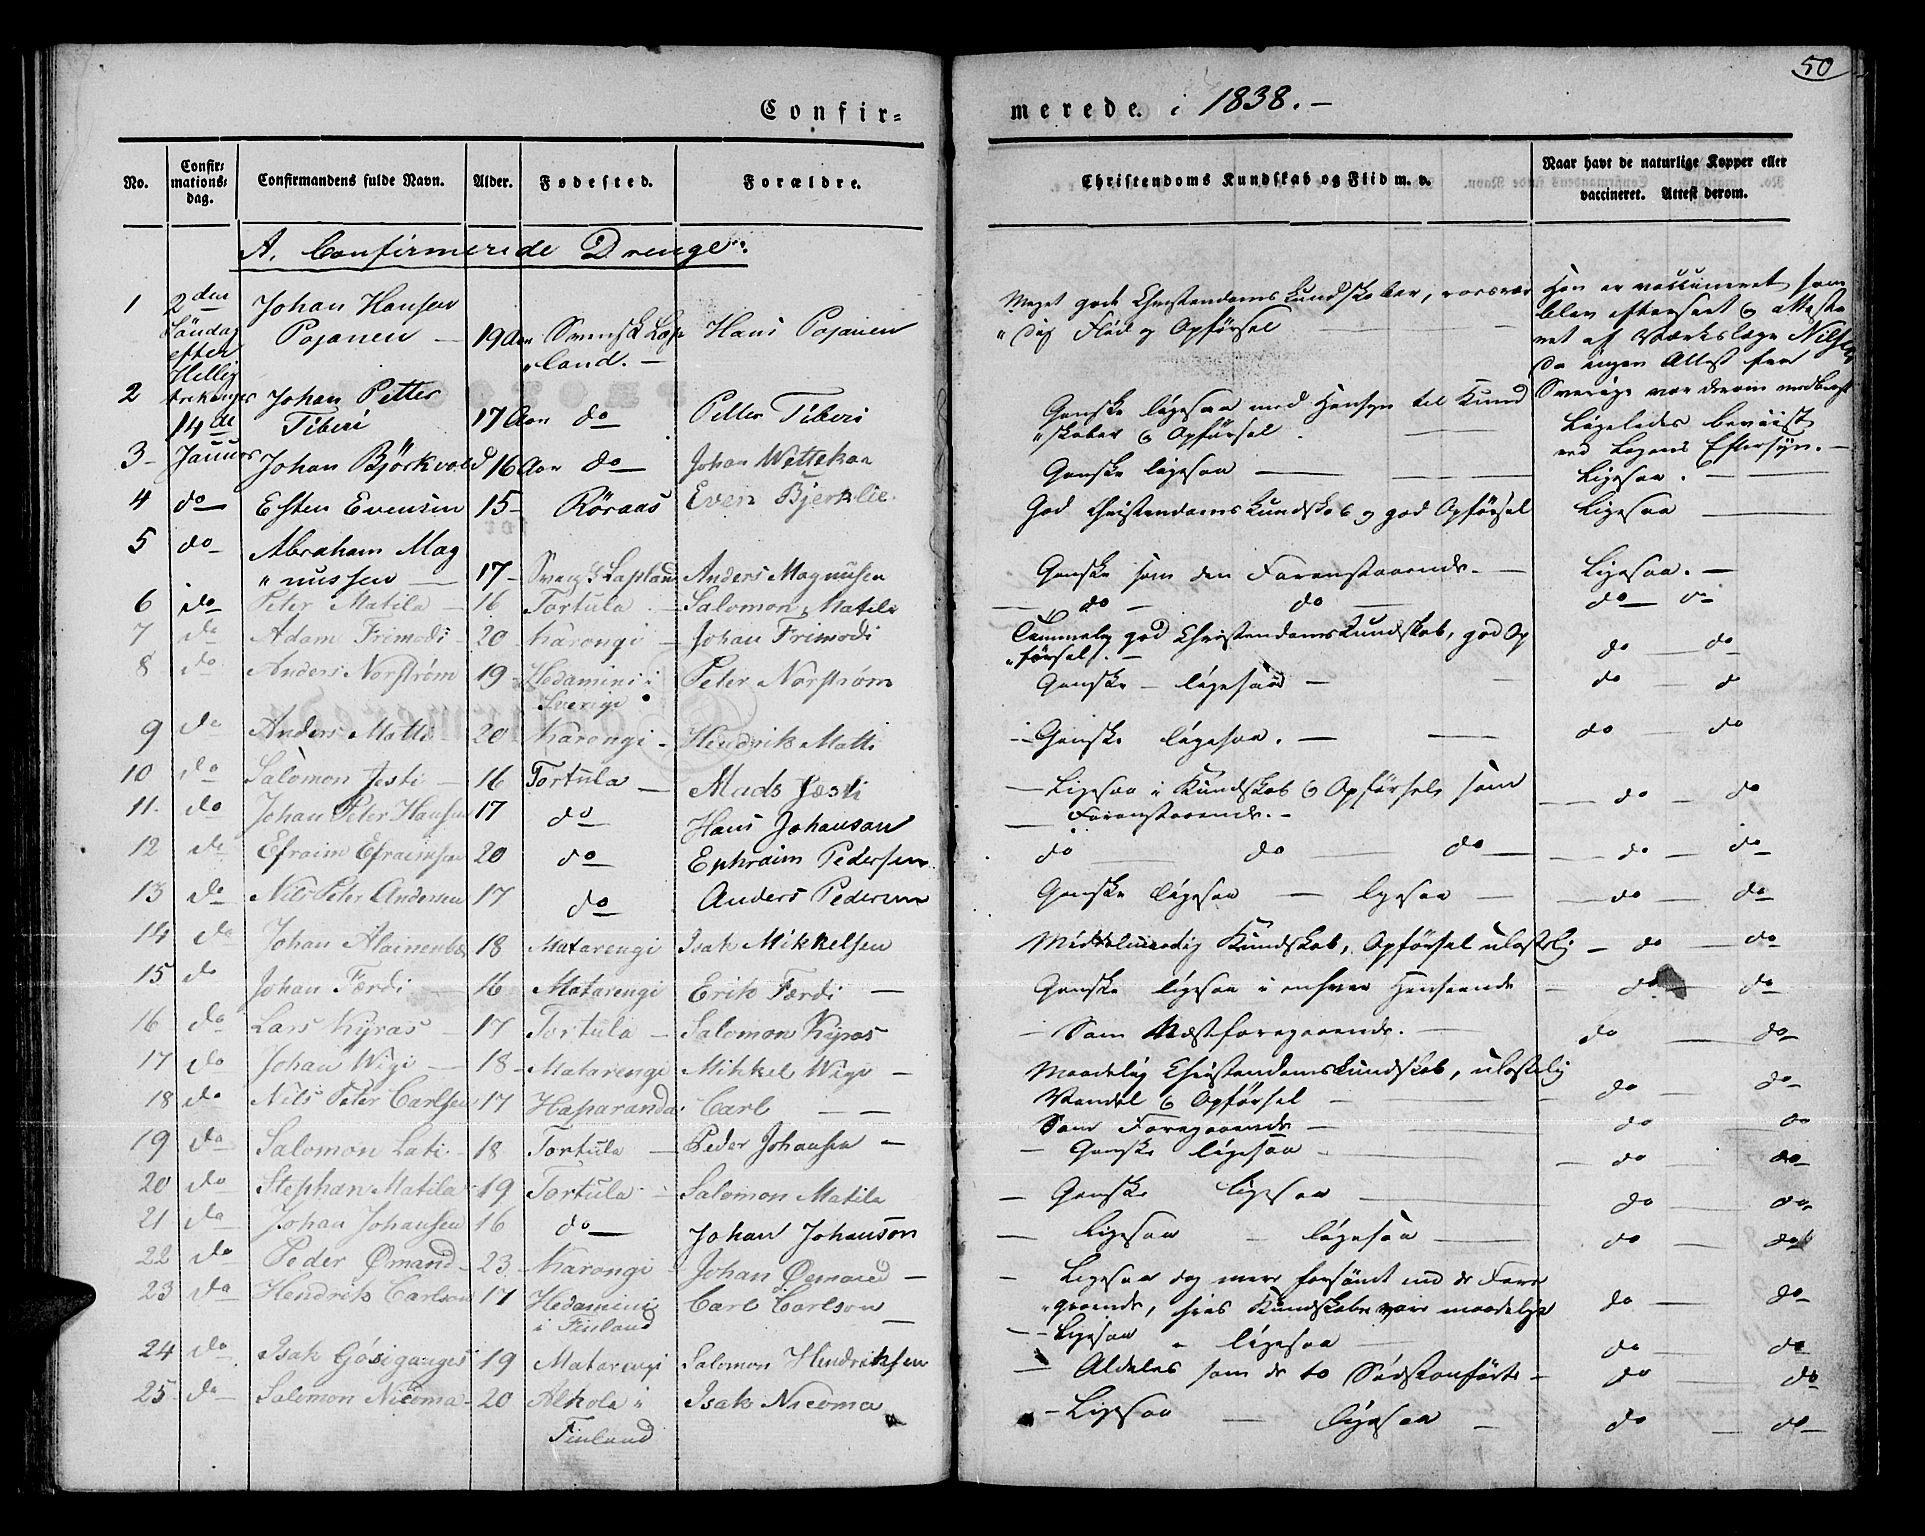 50
Confir=
merede. i 1838. –
No.
Confir=
mations=
dag.
Confirmandens fulde Navn.
Alder.
Fødested.
Forældre.
Christendoms Kundskab og Flid m. v.
Naar havt de naturlige Kopper eller
vaccineret. Attest derom.
A. Confirmerede Drenge.
1 2den Søndag efter Hellig Johan Hansen
Pajanen – 19 Aar Svensk Lap
"land. – Hans Pajanen
Meget gode Christendomskundskaber, roesvær
"dig Flid og Opførsel
Han er vaccineret som
blev efterseet & atteste
ret af Værkslæge Nilsen
da ingen Attest fra
Sverige var derom medbragt
2 14de Johan Petter
Tiberi 17 Aar do Petter Tiberi
Ganske ligesaa med Hensyn til Kund
"skaber & Opførsel.
Ligeledes beviist
ved Lægens Eftersyn. –
3 – Januar Johan Björkvold 16 Aar do Johan Wettekaa Ganske ligesaa – Ligesaa. –
4 do Esten Evensen 15 – Röraas Even Bjerklie God Christendomskundskab og god Opførsel Ligesaa
5 do Abraham Mag
"nussen 17 – Lapland Anders Magnusen Ganske som den Foranstaaende. – Ligesaa. –
6 do Peter Matila – 16 Tortula – Salomon Matila – do – do – do – do
7 do Adam Frimodi 20 Karongi – Johan Frimodi Temmelig god Christendomskundskab, god Op
"førsel. – do – do
8 do Anders Norstrøm 19 – Hedamini i
Sverige Peter Norstrøm Ganske – ligesaa – do – do
9 do Anders Matti 20 Karongi – Hendrik Matti – Ganske ligesaa. – do – do
10 do Salomon Jesti – 16 Tortula – Mads Jæsti – Ligesaa i Kundskab & Opførsel som
Foranstaaende. – do – do
11. do Johan Peter Hansen 17 do Hans Johanson
12 do Efraim Efraimsen 20 do Ephraim Pedersen do – do – do – do – do
13 do Nils Peter Andersen 17 do Anders Pedersen Ganske ligesaa – ligesaa – do – do
14 do Johan 18 Matarengi Isak Mikkelsen Middelmaadig Kundskab, Opførsel ulastelig – do – do
15 do Johan Færdi 16 Matarengi Erik Færdi – Ganske ligesaa i enhver Henseende – do – do
16 do Lars Kyras – 17 Tortula – Salomon Kyras – Som Næstforegaaende. – do – do
17 do Johan Wigi – 18 – Matarengi Mikkel Wigi – Maadelig Christendomskundskab, ulastelig
Vandel & Opførsel – do – do
18 do Nils Peter Carlsen 17 Haparanda Carl – – Som Foregaaende – do – do
19 do Salomon Lati – 18 Tortula – Peder Johansen – – Ganske ligesaa – do – do
20 do Stephan Matila 19 Tortula – Salomon Matila – Ganske ligesaa – do – do
21 do Johan Johansen 16 do Johan Johanson – Ligesaa – ligesaa – do – do
22 do Peder Ømand – 23 – Karongi Johan Ømand – – Ligesaa dog mere forsömt end de Fore
"gaaende, hvis Kundskaber vare maadelige do – do
23 do Hendrik Carlson 17 Hedamini
i Finland Carl Carlson – – Ligesaa – ligesaa – do – do
24 do Isak Gösiganges 19 Matarengi Salomon Hendriksen – Aldeles som de to Sidstanførte – do – do
25 do Salomon Nicoma – 20 Alkola i
Finland Isak Nicoma – Ligesaa – ligesaa – do – do